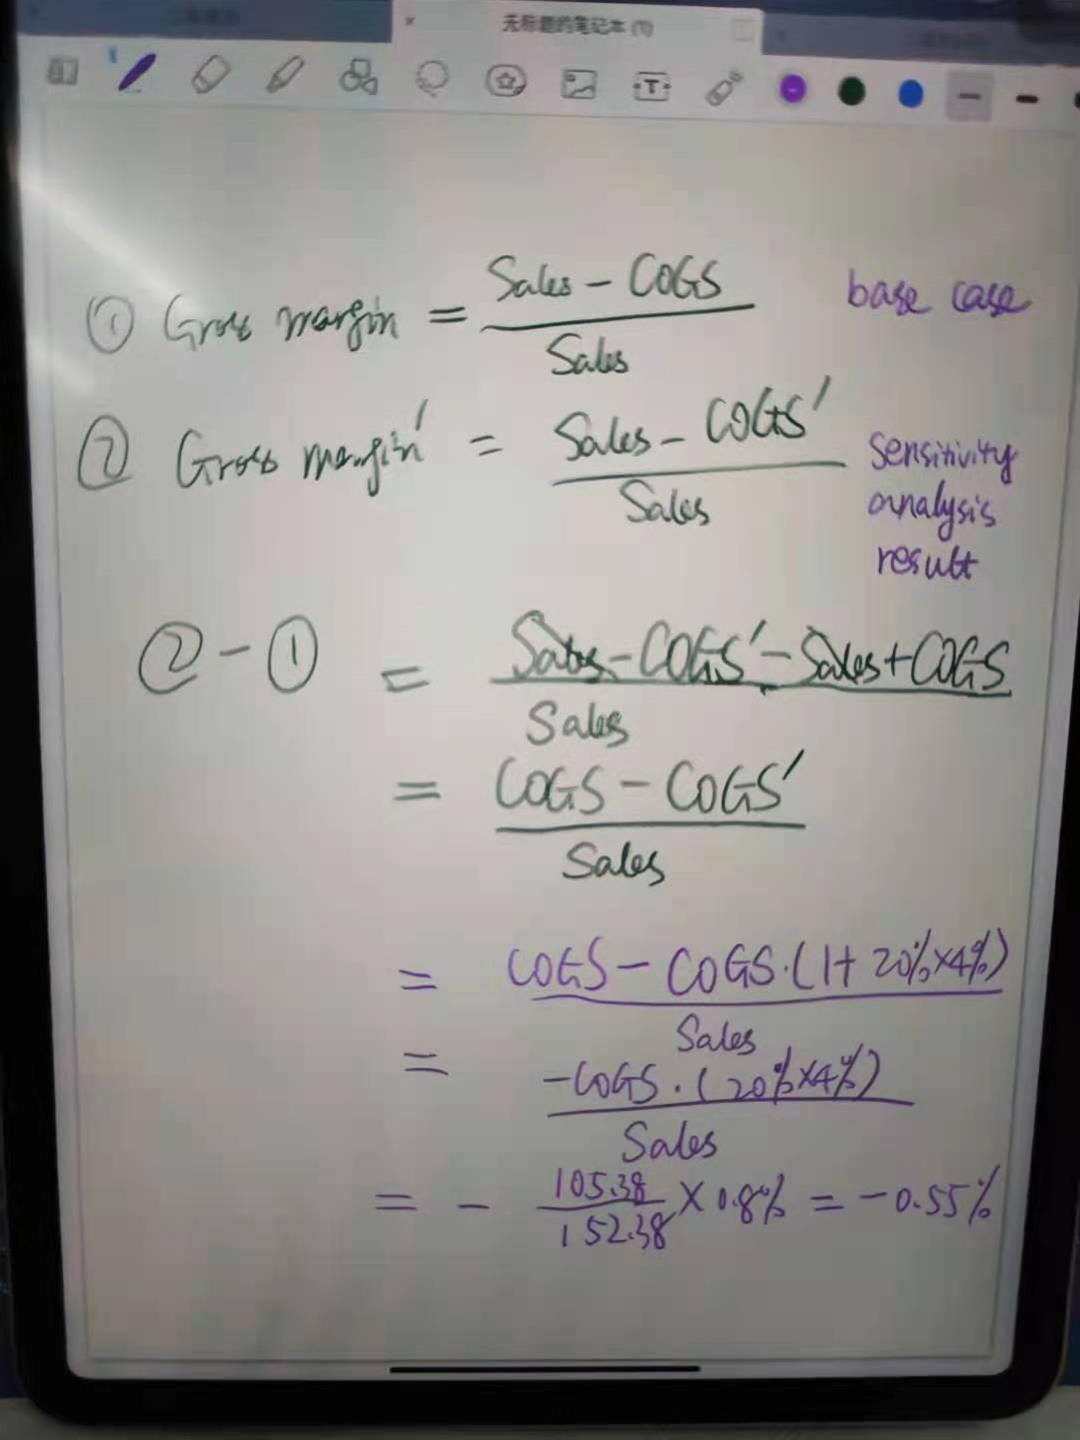 无标题的笔记本 (1)
① Gross margin = Sales - COGS / Sales base case
② Gross margin' = Sales - COGS' / Sales sensitivity analysis result
② - ① = Sales - COGS' - Sales + COGS / Sales
= COGS - COGS' / Sales
= COGS - COGS·(1+20%×4%) / Sales
= -COGS·(20%×4%) / Sales
= - 105.38 / 152.38 × 0.8% = -0.55%